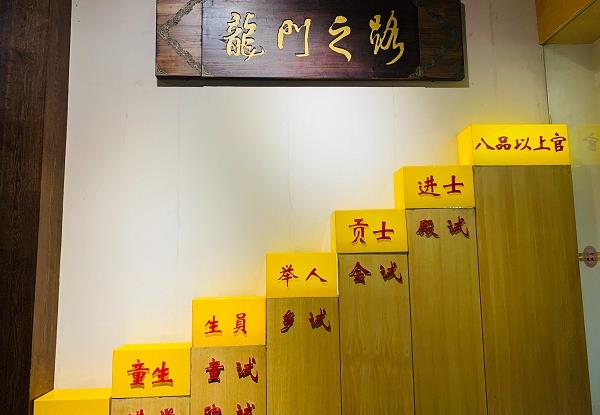 龍門之路
八品以上官
进士
殿试
贡士
會试
举人
乡试
生員
童试
童生